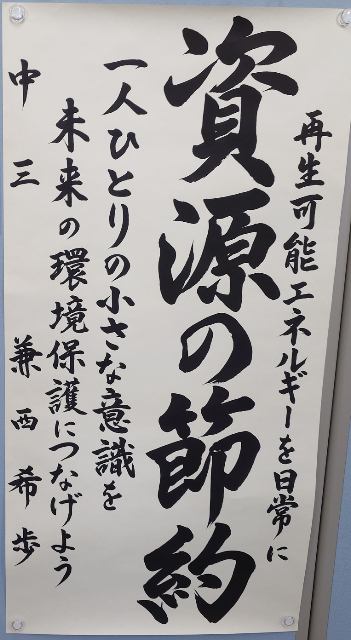 再生可能エネルギーを日常に
資源の節約
一人ひとりの小さな意識を
未来の環境保護につなげよう
中三 兼西希歩